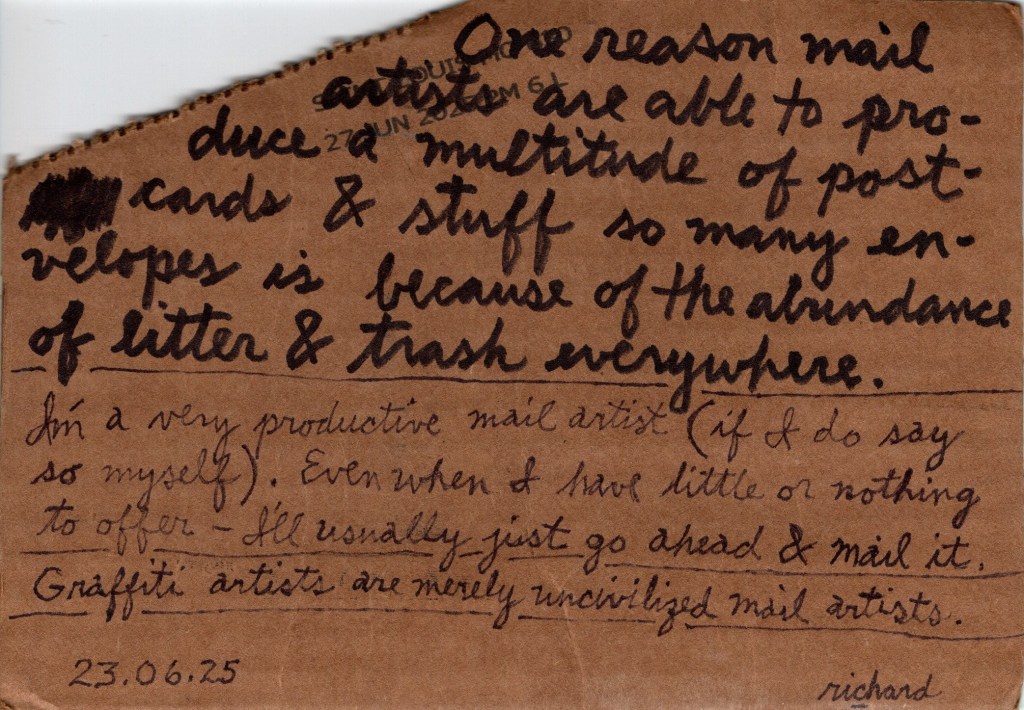 One reason mail
artists are able to pro-
duce a multitude of post-
cards & stuff so many en-
velopes is because of the abundance
of litter & trash everywhere.
I'm a very productive mail artist (if I do say
so myself). Even when I have little or nothing
to offer – I'll usually just go ahead & mail it.
Graffiti artists are merely uncivilized mail artists.
23.06.25
richard
27 JUN 202 PM 6 L